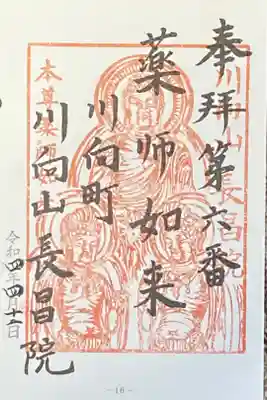 川向山長昌院
奉拝第六番
薬師如来
川向町
川向山長昌院
本尊薬師如来
令和四年四月
- 16 -